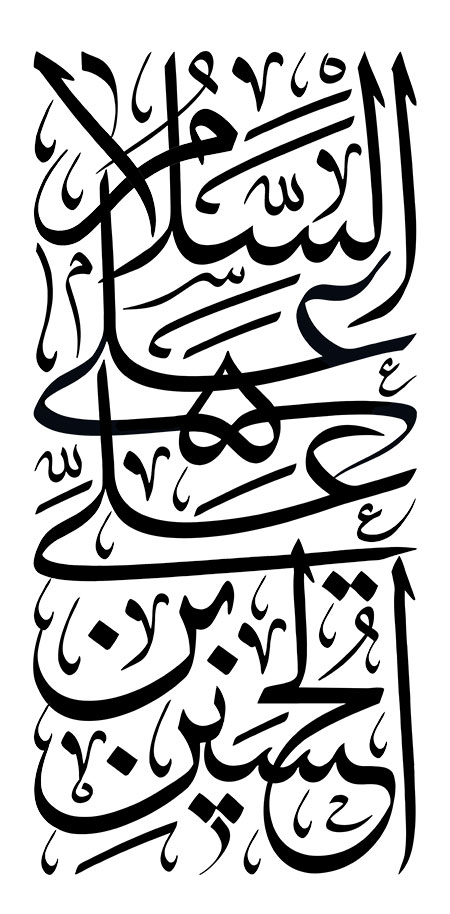 السلام
على
علي
بن
الحسين